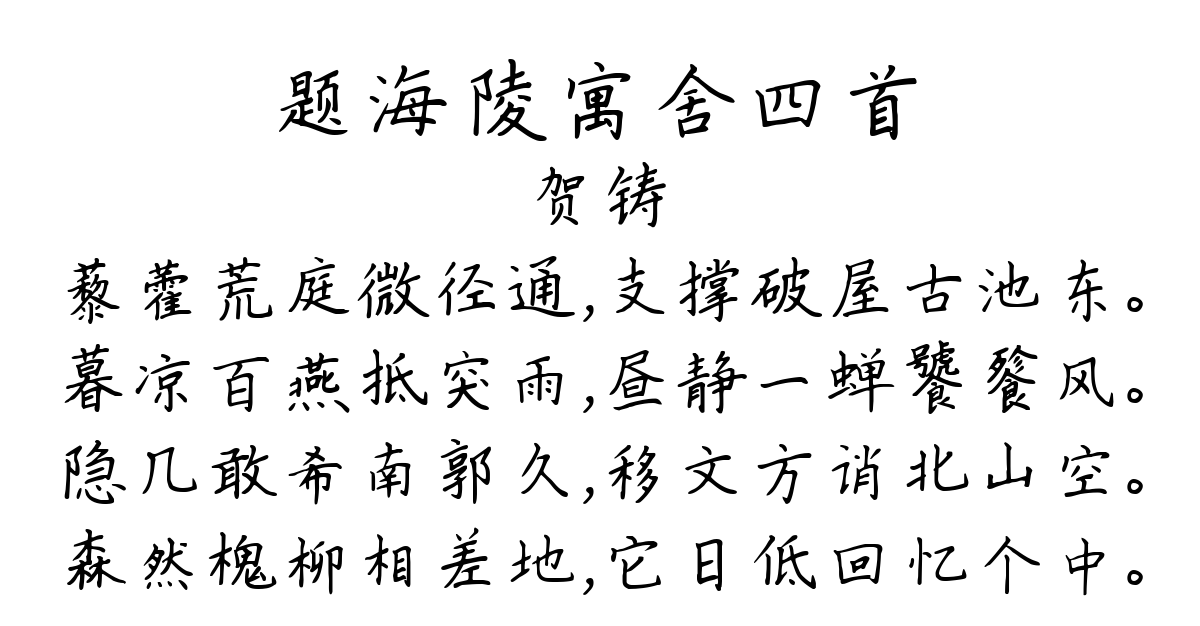 题海陵寓舍四首
贺铸
藜藿荒庭微径通,支撑破屋古池东。
暮凉百燕抵突雨,昼静一蝉饕餮风。
隐几敢希南郭久,移文方诮北山空。
森然槐柳相差地,它日低回忆个中。